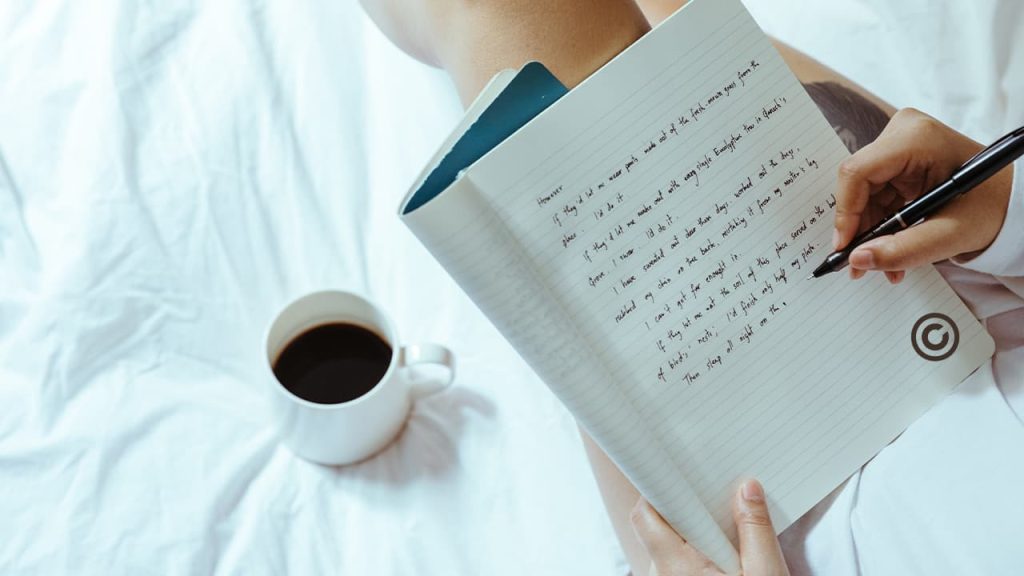 However
If they'd let me wear pants made out of the fresh-mown grass from the
place, I'd do it.
If they'd let me make out with every single Eucalyptus tree in Queens's
Grove, I swear I'd do it.
I have sweated out dew these days, worked out the dregs,
rubbed my chin on the bark, mistaking it for my master's leg
I can't get far enough in.
If they let me eat the soil of this place served on the bed
of birds' nests; I'd finish only half my plate.
Then sleep all night on the
©